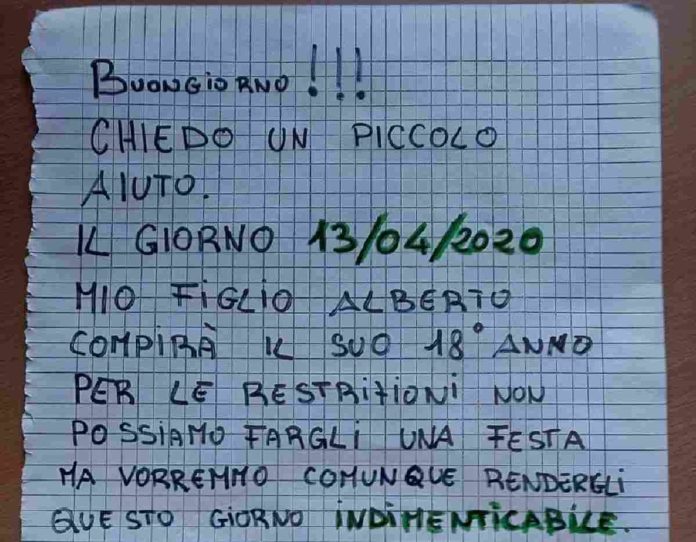 BUONGIORNO!!!
CHIEDO UN PICCOLO
AIUTO.
IL GIORNO 13/04/2020
MIO FIGLIO ALBERTO
COMPIRÀ IL SUO 18° ANNO
PER LE RESTRIZIONI NON
POSSIAMO FARGLI UNA FESTA
MA VORREMMO COMUNQUE RENDERGLI
QUESTO GIORNO INDIMENTICABILE.